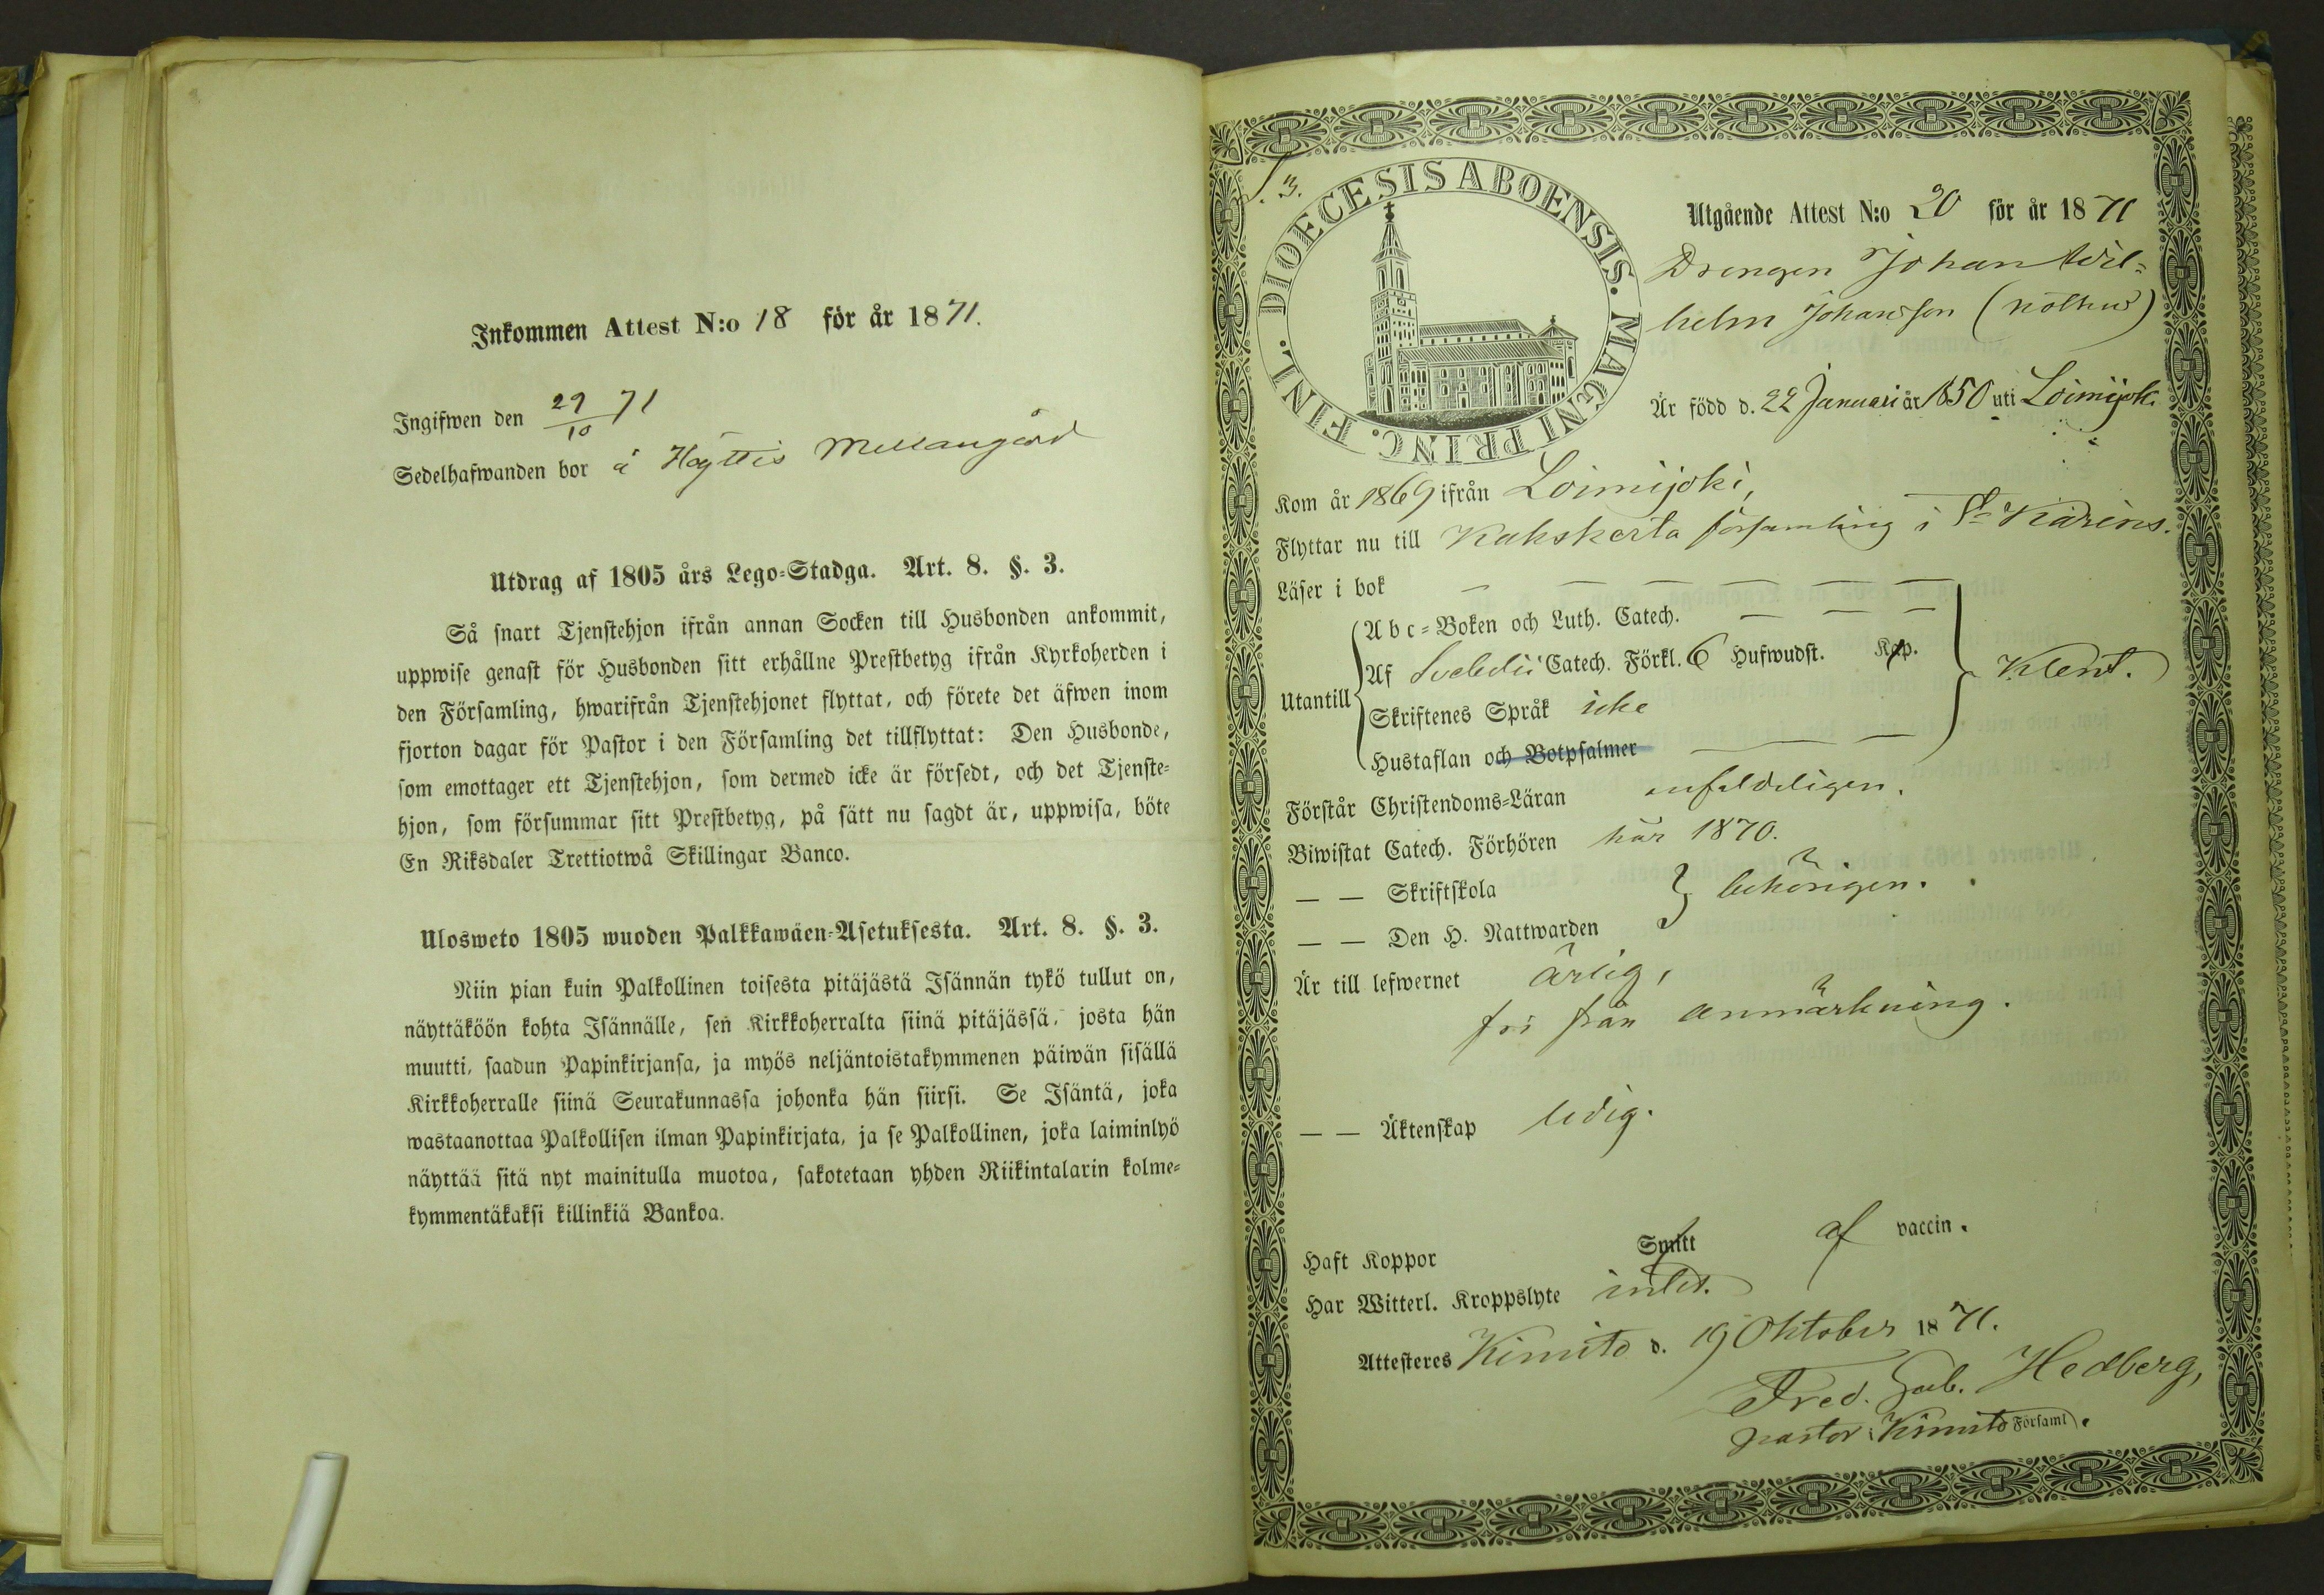 Inkommen Attest N:o 18 för år 1871.
Ingifwen den 29/10 71
Sedelhafwanden bor å Höyttis Mellangård
Utdrag af 1805 års Lego-Stadga. Art. 8. §. 3.
Så snart Tjenstehjon ifrån annan Socken till Husbonden ankommit,
uppwise genast för Husbonden sitt erhållne Prestbetyg ifrån Kyrkoherden i
den Församling, hwarifrån Tjenstehjonet flyttat, och förete det äfwen inom
fjorton dagar för Pastor i den Församling det tillflyttat: Den Husbonde,
som emottager ett Tjenstehjon, som dermed icke är försedt, och det Tjenste-
hjon, som försummar sitt Prestbetyg, på sätt nu sagdt är, uppwisa, böte
En Riksdaler Trettiotwå Skillingar Banco.
Ulosweto 1805 wuoden Palkkawäen-Asetuksesta. Art. 8. §. 3.
Niin pian kuin Palkollinen toisesta pitäjästä Isännän tykö tullut on,
näyttäköön kohta Isännälle, sen Kirkkoherralta siinä pitäjässä, josta hän
muutti, saadun Papinkirjansa, ja myös neljäntoistakymmenen päiwän sisällä
Kirkkoherralle siinä Seurakunnassa johonka hän siirsi. Se Isäntä, joka
wastaanottaa Palkollisen ilman Papinkirjata, ja se Palkollinen, joka laiminlyö
näyttää sitä nyt mainitulla muotoa, sakotetaan yhden Riikintalarin kolme-
kymmentäkaksi killinkiä Bankoa.
DIOECESIS ABOENSIS. MAGNI PRINC. FINL.
Utgående Attest N:o 20 för år 1871
Drengen Johan Wil-
helm Johansson
Är född d. 22 Januari år 1850 uti Loimijok.
Kom år 1869 ifrån Loimijoki,
Flyttar nu till Kakskerta församling i St Karins.
Läser i bok — — — — — —
Abc-Boken och Luth. Catech. — — —
Utantill Af Svebelii Catech. Förkl. 6 Hufwudst. Kap. Klent.
Skriftenes Språk icke
Hustaflan och Botpsalmer — —
Förstår Christendoms-Läran enfaldeligen.
Biwistat Catech. Förhören här 1870.
— — Skriftskola
— — Den H. Nattwarden behörigen.
Är till lefwernet ärlig,
fri från anmärkning.
— — Äktenskap ledig.
Haft Koppor Smitt af vaccin.
Har Witterl. Kroppslyte intet.
Attesteres Kimito d. 19 Oktober 1871.
Fred. Gab. Hedberg,
pastor i Kimito Församl.